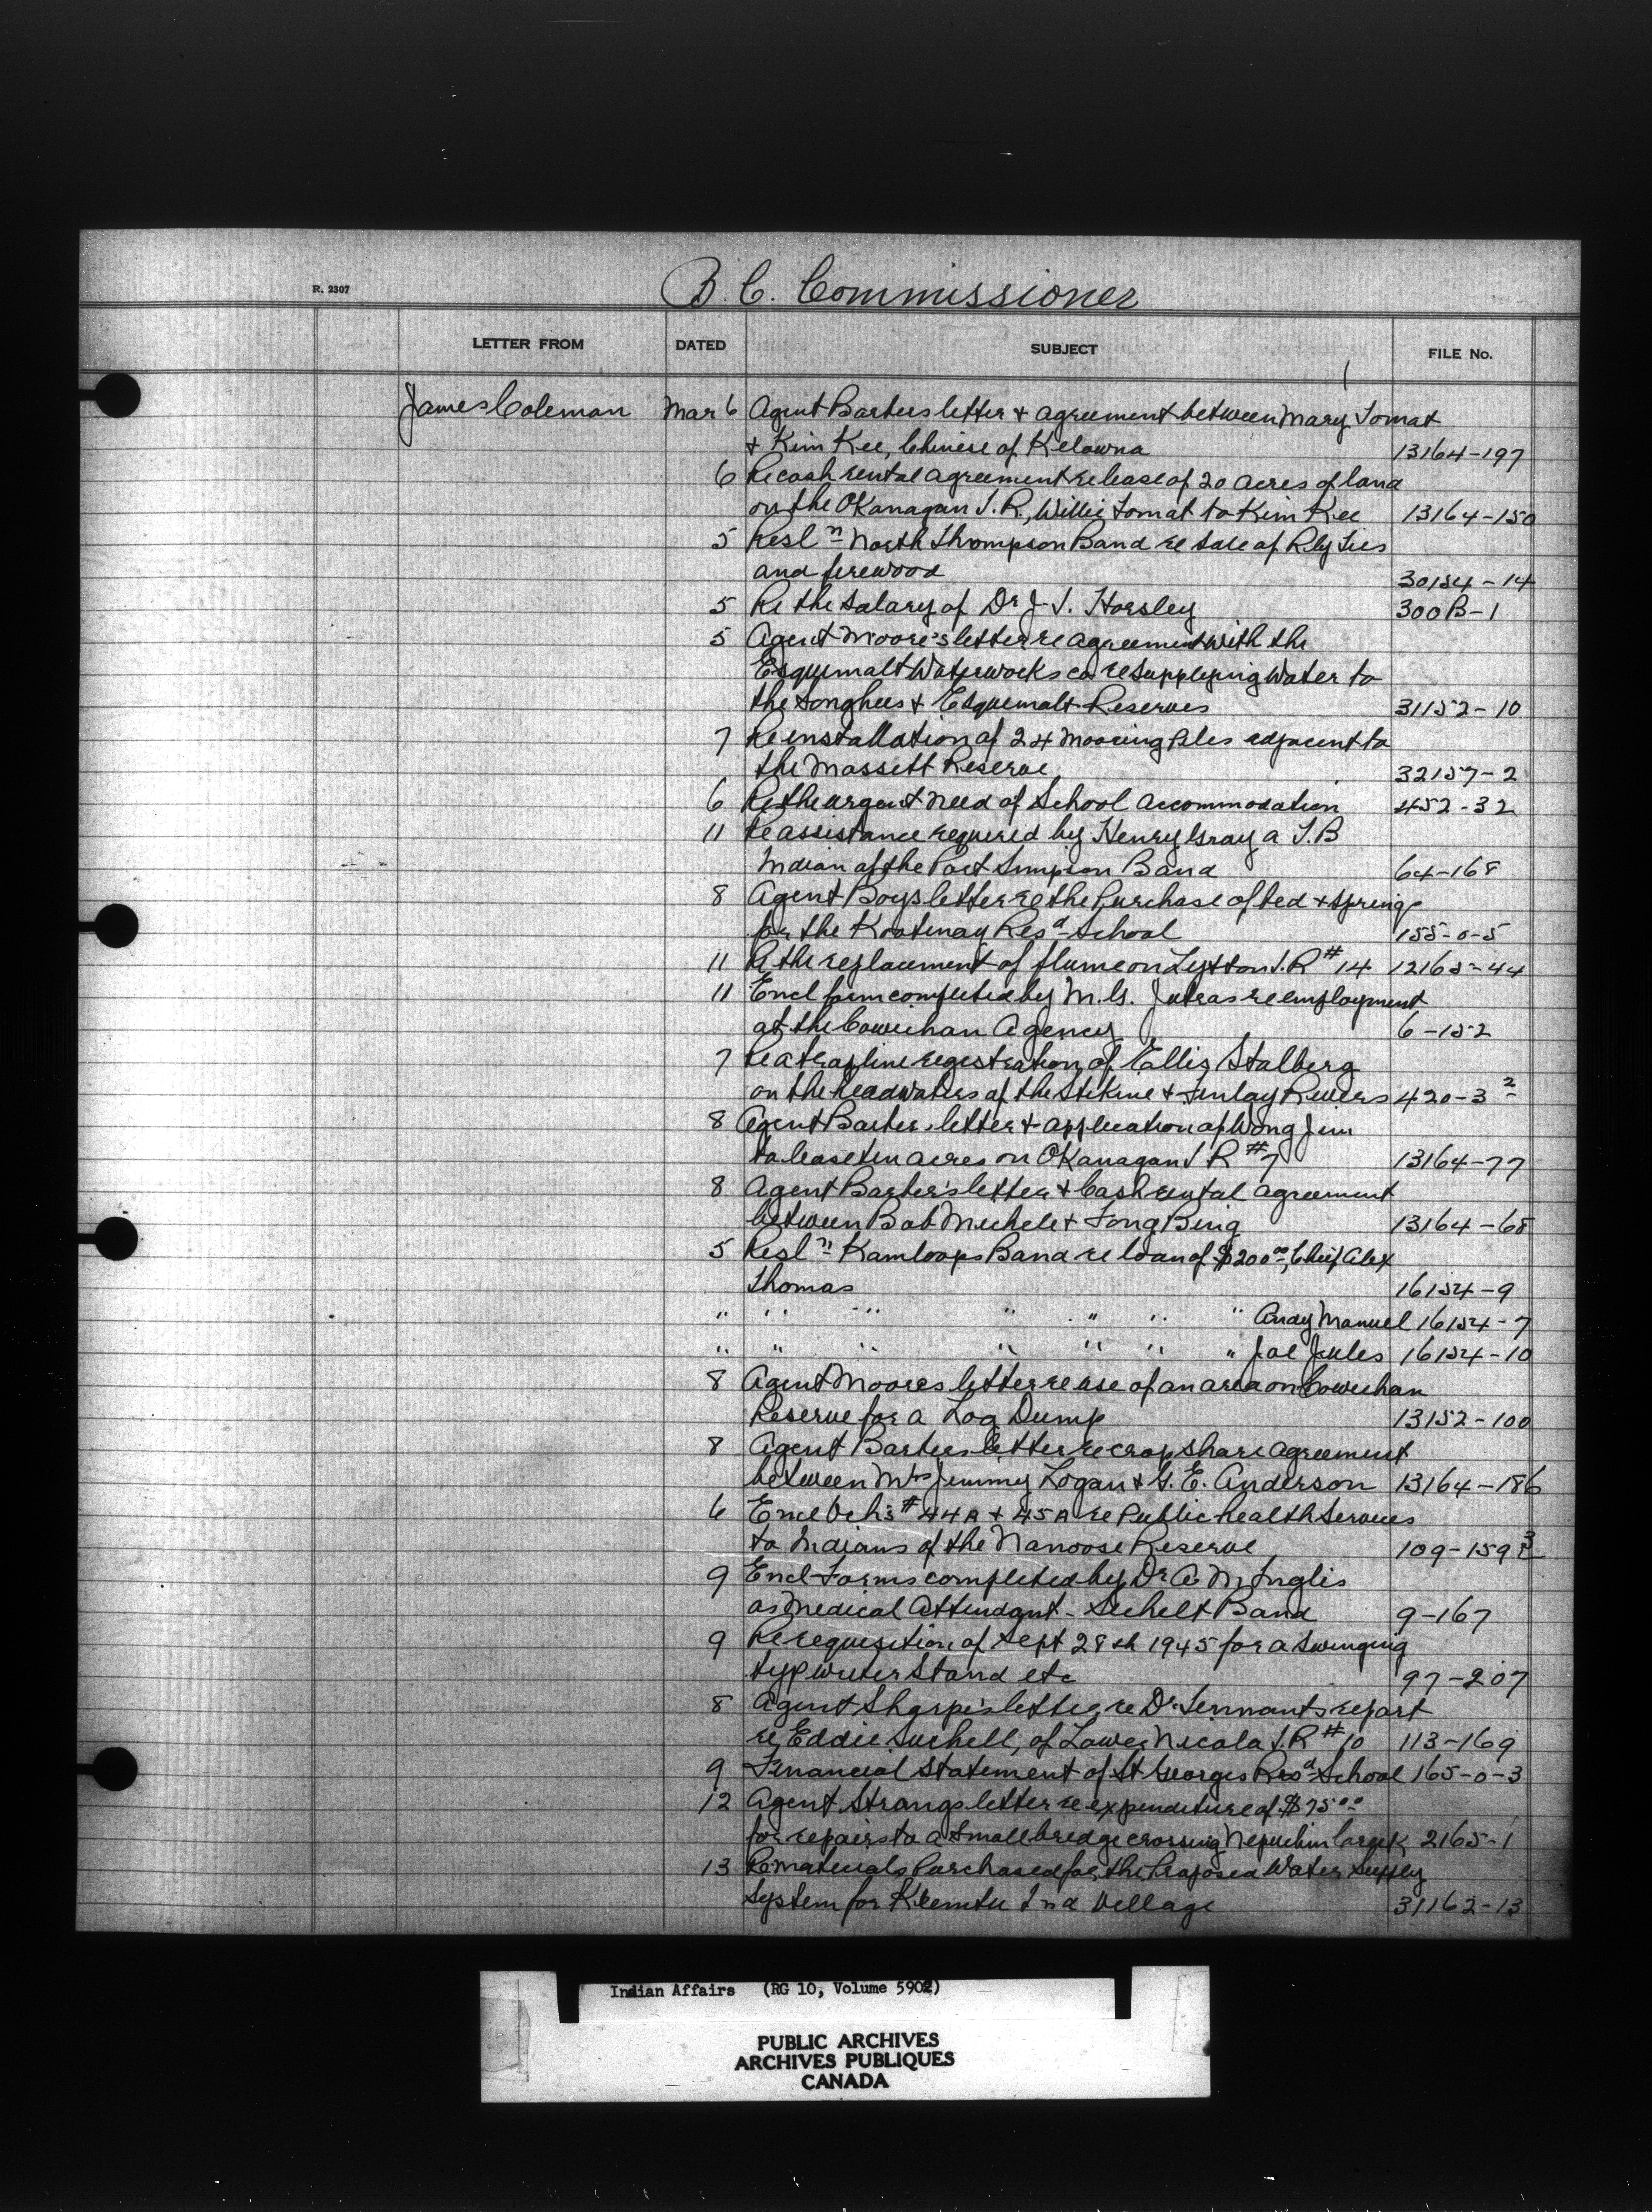 R. 2307
B. C. Commissioner
LETTER FROM DATED SUBJECT FILE No.
James Coleman Mar 6 Agent Barbers letter & agreement between Mary Tomat
& Kim Kee, Chinese of Kelowna 13164-197
6 Re cash rental agreement re lease of 20 acres of land
on the OKanagan I.R., Willie Tomat to Kim Kee 13164-150
5 Resln North Thompson Band re sale of Rly Ties
and firewood 30154-14
5 Re the salary of Dr J. S. Horsley 300B-1
5 Agent Moore's letter re agreement with the
Esquimalt Waterworks co re supplying water to
the Songhees & Esquimalt Reserves 31152-10
7 Re installation of 24 mooring piles adjacent to
the Massett Reserve 32157-2
6 Re the urgent need of School Accommodation 452-32
11 Re assistance required by Henry Gray a T.B
Indian of the Port Simpson Band 64-168
8 Agent Boys letter re the Purchase of bed & springs
for the Kootenay Resd School 155-0-5
11 Re the replacement of flume on Lytton I.R # 14 12165-44
11 Encl form completed by M. G. Jutras re employment
at the Cowichan Agency 6-152
7 Re a trapline registration of Ellis Stalberg
on the headwaters of the Stikine & Finlay Rivers 420-3 2
8 Agent Barber's letter & application of Wong Jim
to lease ten acres on OKanagan I R #7 13164-77
8 Agent Barber's letter & Cash rental agreement
between Bob Michele & Fong Bing 13164-68
5 Resln Kamloops Band re loan of $200.00, Chief Alex
Thomas 16154-9
" " " " " " " Andy Manuel 16154-7
" " " " " " " Joe Jules 16154-10
8 Agent Moores letter re use of an area on Cowichan
Reserve for a Log Dump 13152-100
8 Agent Barbers letter re crop share agreement
between Mrs Jimmy Logan & G. E. Anderson 13164-186
6 Encl Vchs # 44A & 45A re Public health Services
to Indians of the Nanoose Reserve 109-159 3
9 Encl Forms completed by Dr A. M. Inglis
as Medical Attendant - Sechelt Band 9-167
9 Re requisition of Sept 28th 1945 for a swinging
typwriter Stand etc 97-207
8 Agent Sharpe's letter re Dr Tennants report
re Eddie, of Lower Nicola I.R #10 113-169
9 Financial Statement of St Georges Resd School 165-0-3
12 Agent Strangs letter re expenditure of $75.00
for repairs to a small bridge crossing creek 2165-1
13 Re materials Purchased for the Proposed Water Supply
System for Klemtu Ind Village 31162-13
Indian Affairs (RG 10, Volume 5902)
PUBLIC ARCHIVES
ARCHIVES PUBLIQUES
CANADA